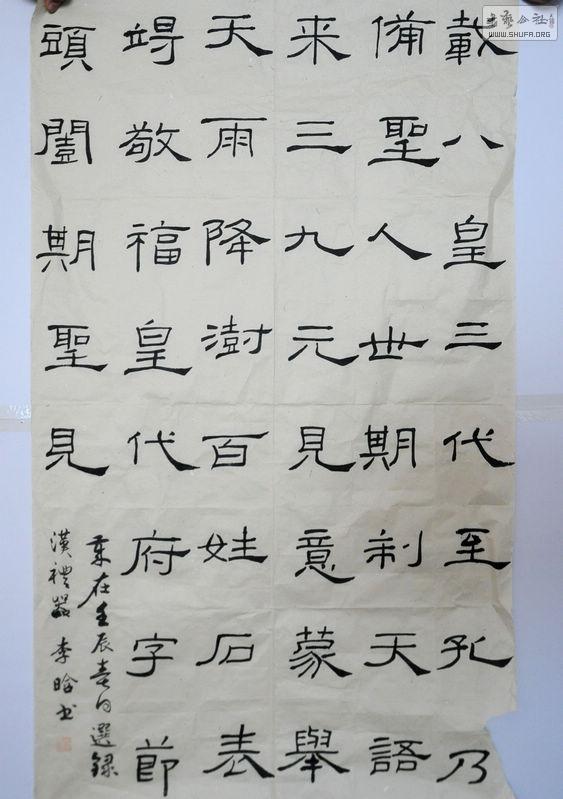 載八皇三代至孔乃
備聖人世期制天語
来三九元見意蒙舉
天雨降澍百姓石表
竭敬福皇代府字節
頭闓期聖見
在壬辰春日選錄
漢禮器 李晗书
WWW.SHUFA.ORG